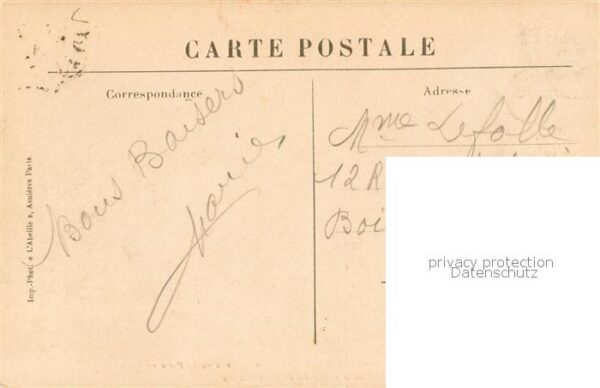 CARTE POSTALE
Correspondance
Adresse
Bons Baisers
Marie
Mme Lefolle
12 R
Boi
Imp.-Phot. « L'Abeille », Asnières Paris.
privacy protection
Datenschutz